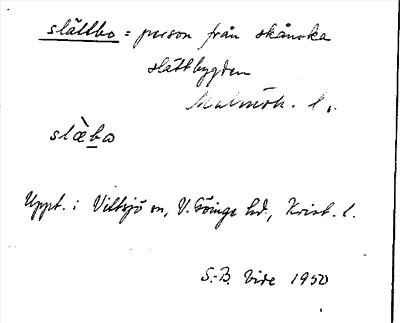 slättbo = person från skånska
slättbygden
Malmöh. l.
slæ̀bo
Uppt. i Vittsjö sn, V. Göinge hd, Krist. l.
S.-B. Vide 1950